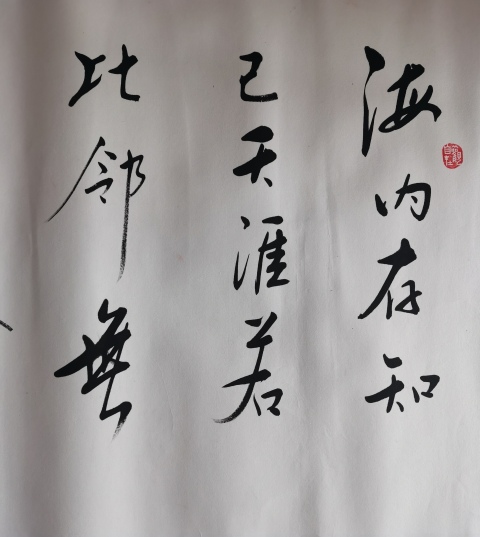 海内存知
己天涯若
比邻無